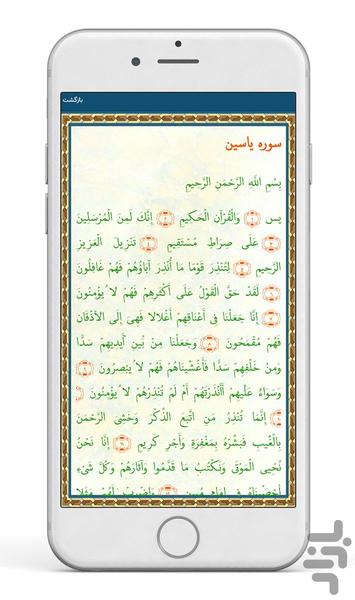 بازگشت
سوره یاسین
بِسْمِ اللَّهِ الرَّحْمَنِ الرَّحِيمِ
يس ﴿١﴾ وَالْقُرْآنِ الْحَكِيمِ ﴿٢﴾ إِنَّكَ لَمِنَ الْمُرْسَلِينَ
﴿٣﴾ عَلَى صِرَاطٍ مُسْتَقِيمٍ ﴿٤﴾ تَنْزِيلَ الْعَزِيزِ
الرَّحِيمِ ﴿٥﴾ لِتُنْذِرَ قَوْمًا مَا أُنْذِرَ آبَاؤُهُمْ فَهُمْ غَافِلُونَ
﴿٦﴾ لَقَدْ حَقَّ الْقَوْلُ عَلَى أَكْثَرِهِمْ فَهُمْ لَا يُؤْمِنُونَ
﴿٧﴾ إِنَّا جَعَلْنَا فِي أَعْنَاقِهِمْ أَغْلَالًا فَهِيَ إِلَى الْأَذْقَانِ
فَهُمْ مُقْمَحُونَ ﴿٨﴾ وَجَعَلْنَا مِنْ بَيْنِ أَيْدِيهِمْ سَدًّا
وَمِنْ خَلْفِهِمْ سَدًّا فَأَغْشَيْنَاهُمْ فَهُمْ لَا يُبْصِرُونَ ﴿٩﴾
وَسَوَاءٌ عَلَيْهِمْ أَأَنْذَرْتَهُمْ أَمْ لَمْ تُنْذِرْهُمْ لَا يُؤْمِنُونَ
﴿١٠﴾ إِنَّمَا تُنْذِرُ مَنِ اتَّبَعَ الذِّكْرَ وَخَشِيَ الرَّحْمَنَ
بِالْغَيْبِ فَبَشِّرْهُ بِمَغْفِرَةٍ وَأَجْرٍ كَرِيمٍ ﴿١١﴾ إِنَّا نَحْنُ
نُحْيِي الْمَوْتَى وَنَكْتُبُ مَا قَدَّمُوا وَآثَارَهُمْ وَكُلَّ شَيْءٍ
أَحْصَيْنَاهُ فِي إِمَامٍ مُبِينٍ ﴿١٢﴾ وَاضْرِبْ لَهُمْ مَثَلًا
بازار